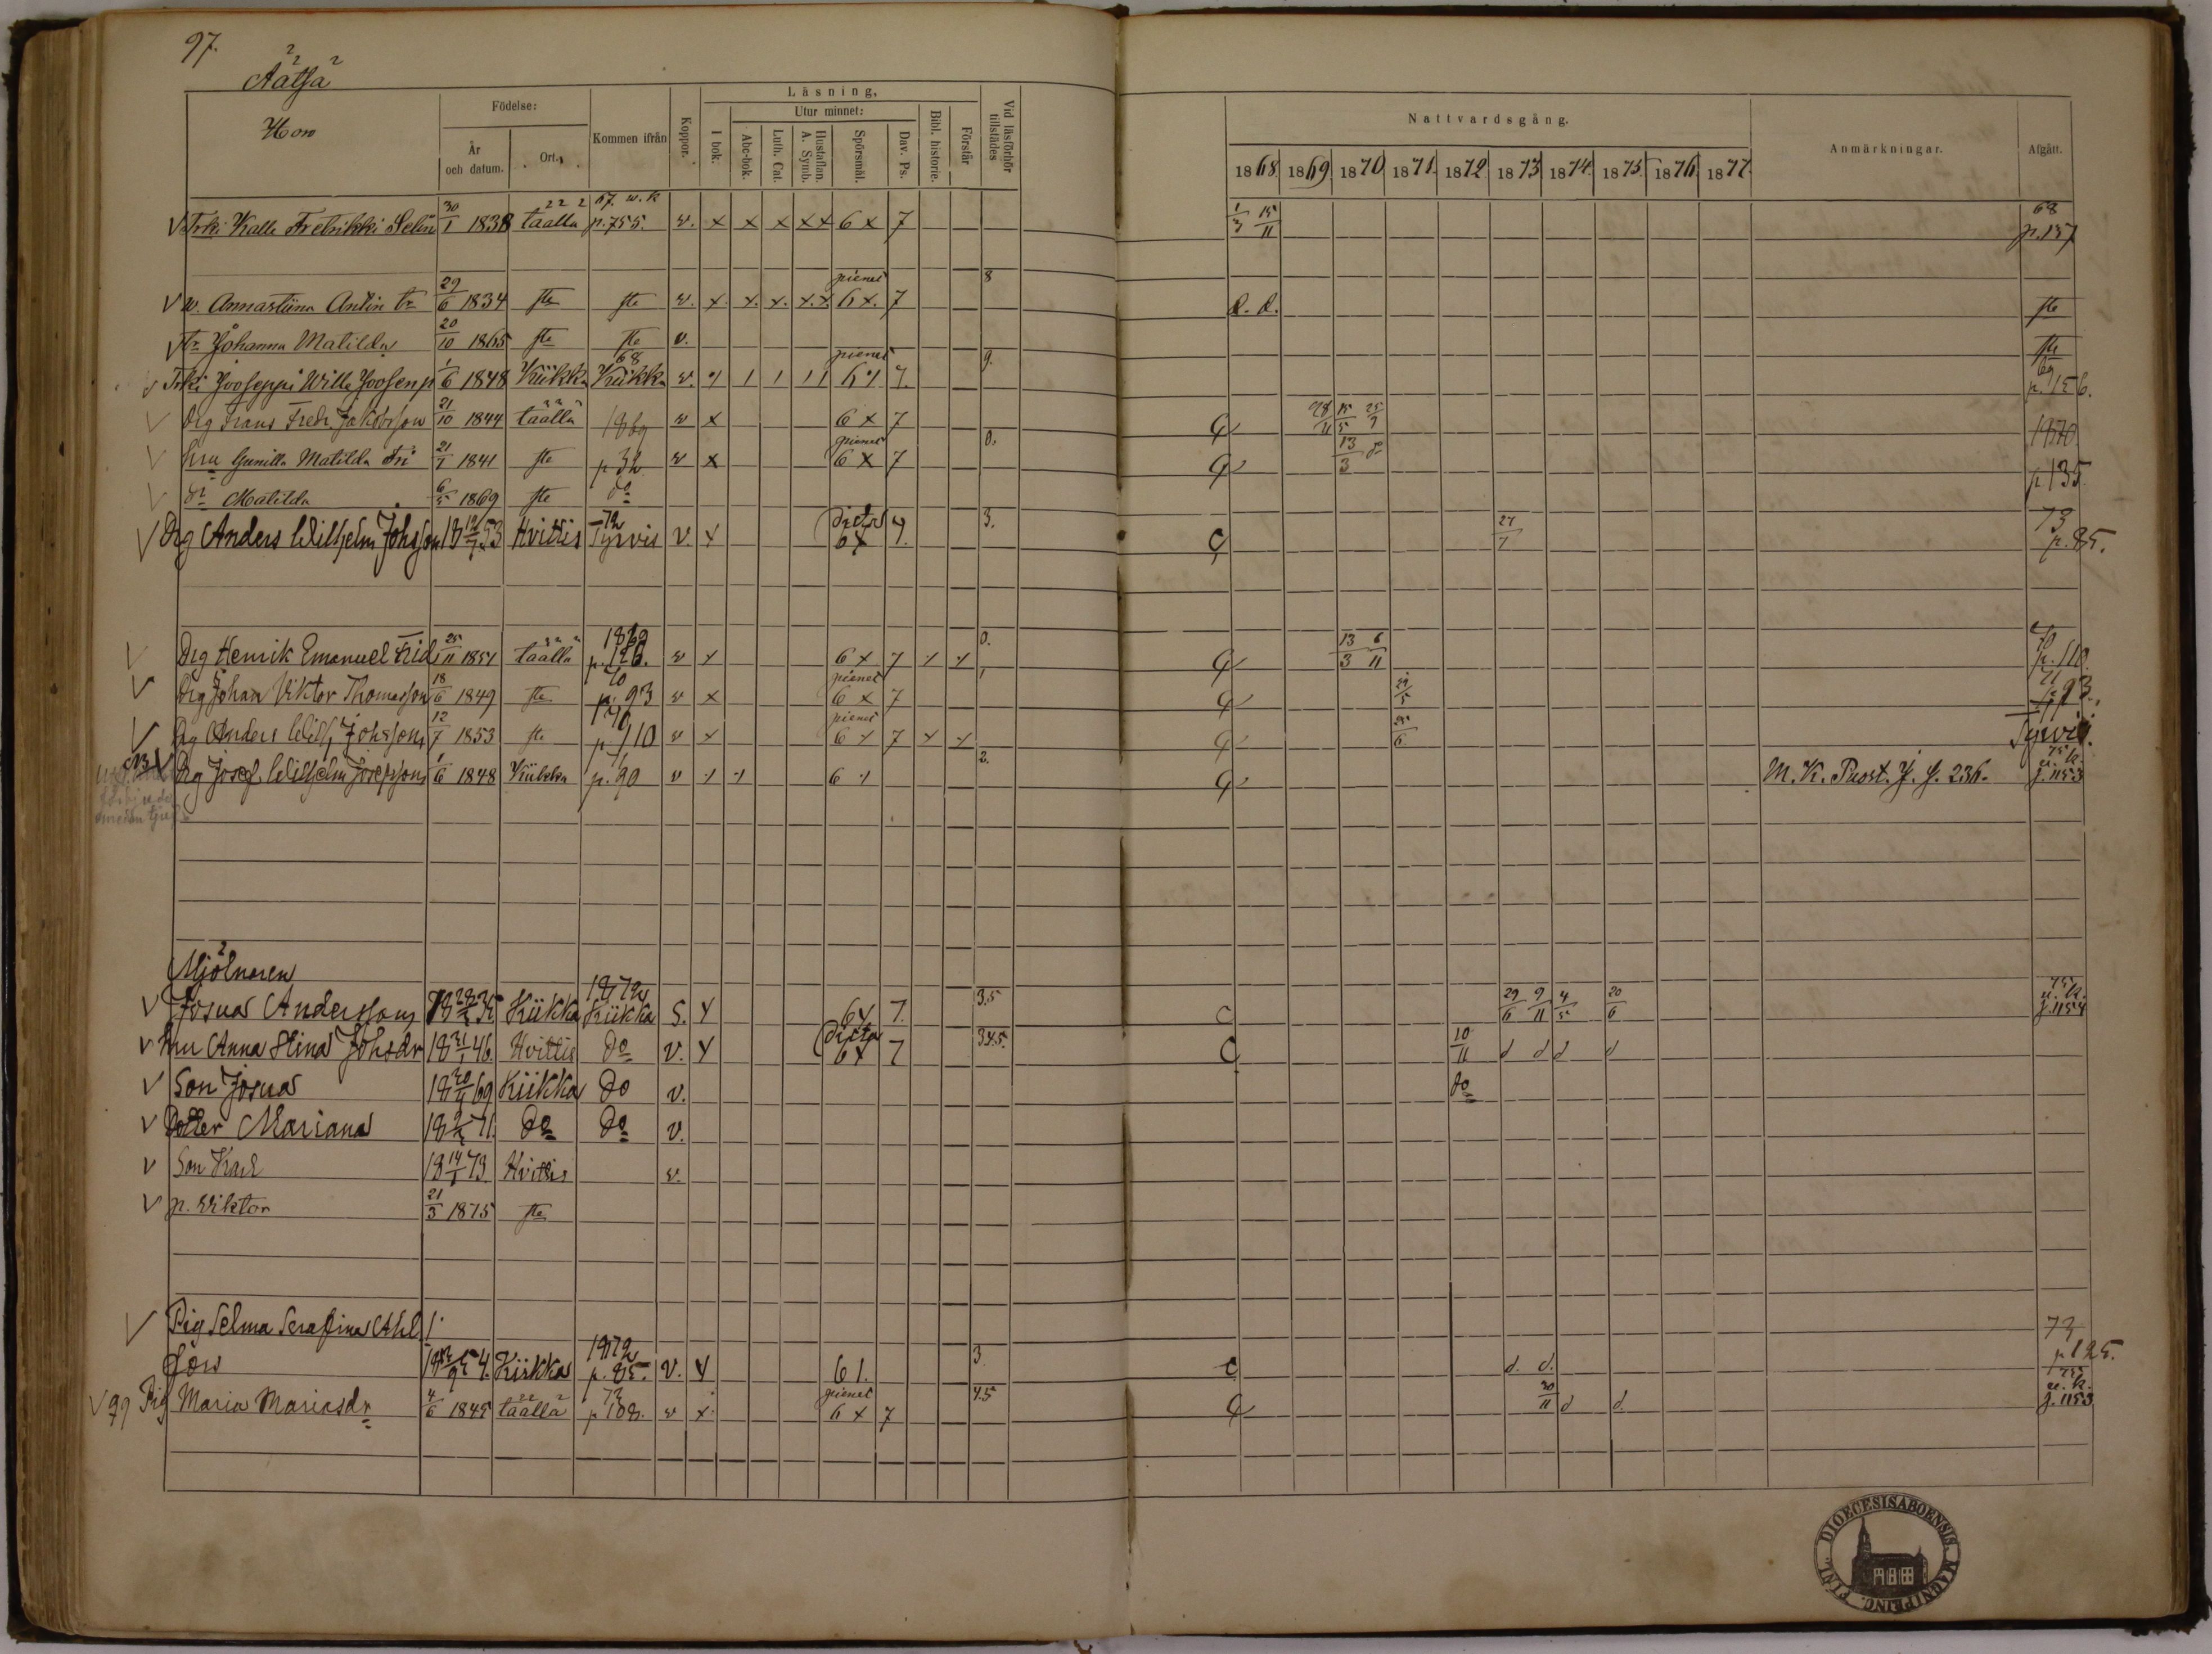 97.
Äätsä
Hon
Födelse:
År och datum.
Ort.
Kommen ifrån
Koppor.
Läsning,
I bok.
Utur minnet:
Abc-bok.
Luth. Cat.
Hustaflan. A. Symb.
Spörsmål.
Dav. Ps.
Bibl. historie.
Förstår
Vid läsförhör tillstädes
Nattvardsgång.
1868. 1869 1870 1871. 1872 1873 1874. 1875. 1876 1877.
Anmärkningar.
Afgått.
67. w. k 68
V Trki Kalle Fredrikki Selin 30/1 1838 täällä p. 755. w. x x x x x 6 x 7 1/3 15/11 p. 157
pienet 8
V w. Annastiina Antin tr 29/6 1834 ste ste w. x. x. x. x. x. 6 x. 7 d. d. ste
V tr Johanna Matilda 20/10 1865 ste ste v. ste
68 pienet 9. 69
Trki Jooseppi Wille Joosenp 1/6 1848 Kiikka Kiikka v. 7. p. 156.
V Drg Frans Fredr Jakobsson 21/10 1844 täällä 1869 w x 6 x 7 28/11 15/5 25/9 1870
pienet 0.
V hru Gunilla Matilda Fri 21/7 1841 ste p 32 w x 6 x 7 13/3 p 135
V dr Matilda 6/5 1869 ste do
72 3. 73
V Drg Anders Wilhelm Johsson 18 12/7 53 Hvittis Tyrvis v. x 6x 7. C 27/7 p. 85.
1869 0. 70
V Drg Henrik Emanuel Frid 25/11 1851 täällä p. 126. w x 6 x 7 x x 13/3 6/11 p. 110.
70 pienet 1 71
V Drg Johan Viktor Thomasson 18/6 1849 ste p. 93 w x 6 x 7 29/5 p 93.
1870 pienet
V Drg Anders Wilh. Johsson 12/7 1853 ste p 110 w x 6 x 7 x x 6 Tyrvis.
71 2. 75
V Drg Josef Wilhelm Josefsson 1/6 1848 Kiikka p. 90 v 6 M. K. Puost. J. S. 236. u. k. j. 1153
Mjölnaren
1872 3.5 75
V Josua Andersson Kiikka Kiikka S. x 6x 7. C 29/6 9/11 4/5 20/6 u. k. j. 1154
3.4.5.
V hru Anna Stina Johsdr 18 21/1 46 Hvittis do v. x 6x 7 C 10/11 d d d d
V Son Josua 18 20/11 69 Kiikka do v. do
V Dotter Mariana 71. do do v.
V Son Karl 18 14/1 73 Hvittis v.
V p. Viktor 21/3 1875 ste
V Pig Selma Serafina Ahl
1872 3 73
54. Kiikka p. 85. v. x 61. C d. d. p 125.
72 pienet 4.5 75
V Pig Maria Mariasdr 4/6 1845 täällä p 108. w x 6 x 7 30/11 d d u. k. j. 1153
DIOECESIS ABOENSIS. MAGNI PRINC. FINL.